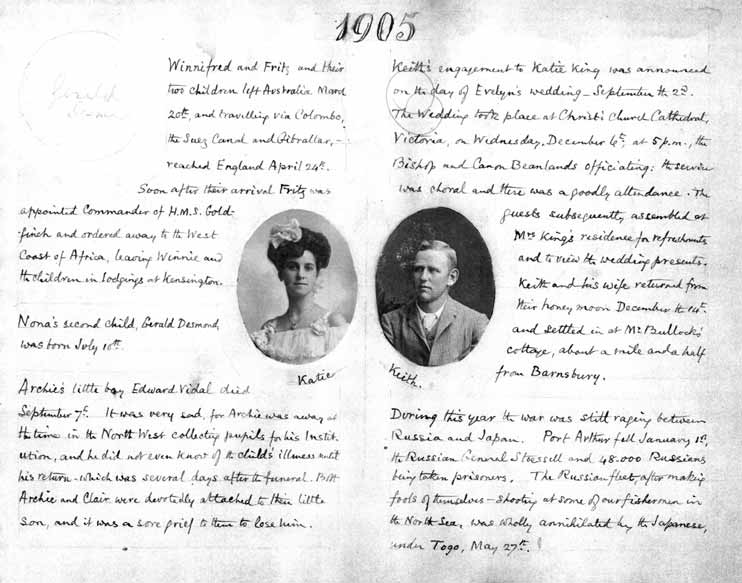 1905
Winnifred and Fritz and their
two children left Australia March
20th, and travelling via Colombo,
the Suez Canal and Gibraltar, -
reached England April 24th.
Soon after their arrival Fritz was
appointed Commander of H.M.S. Gold-
finch and ordered away to the West
Coast of Africa, leaving Winnie and
the children in Lodgings at Kensington.
Nona's second child, Gerald Desmond,
was born July 10th.
Archie's little boy Edward Vidal died
September 7th. It was very sad, for Archie was away at
the time in the North West collecting pupils for his Instit-
ution, and he did not even know of the child's illness until
his return - which was several days after the funeral. Both
Archie and Clair were devotedly attached to their little
son, and it was a sore grief to them to lose him.
Katie
Keith's engagement to Katie King was announced
on the day of Evelyn's wedding - September the 2nd.
The Wedding took place at Christ Church Cathedral,
Victoria, on Wednesday, December 6th, at 5 p.m., the
Bishop and Canon Beanlands officiating: the service
was choral and there was a goodly attendance. The
guests subsequently assembled at
Mrs King's residence for refreshments
and to view the wedding presents.
Keith and his wife returned from
their honeymoon December the 14th.
and settled in at Mr Bullock's
cottage, about a mile and a half
from Barnsbury.
Keith.
During this year the war was still raging between
Russia and Japan. Port Arthur fell January 1st,
the Russian General Stoessell and 48.000 Russians
being taken prisoners. The Russian fleet, after making
fools of themselves - shooting at some of our fishermen in
the North Sea, was wholly annihilated by the Japanese,
under Togo, May 27th.